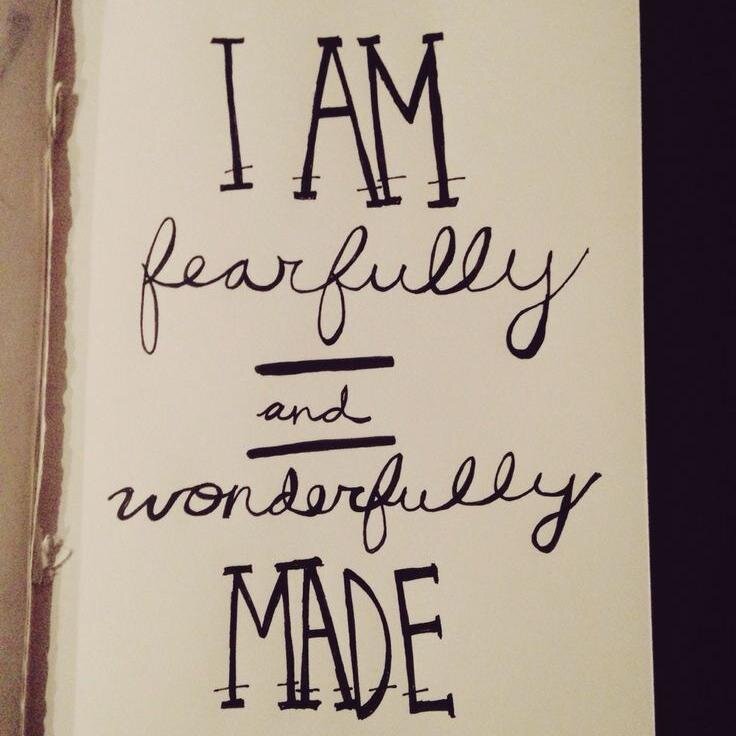 I AM
fearfully
and
wonderfully
MADE